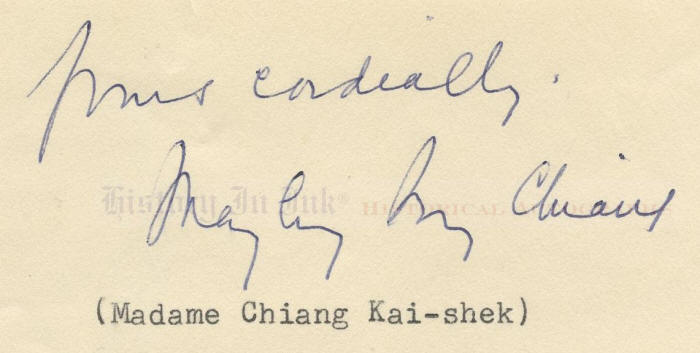 Yours cordially.
Mayling Soong Chiang
History In Ink® Historical Autographs
(Madame Chiang Kai-shek)